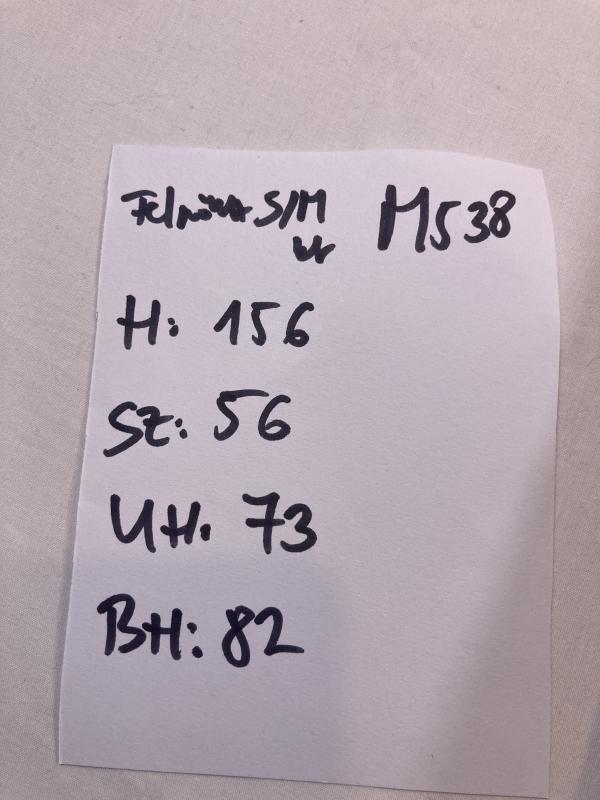 Felnőtt S/M M538
H: 156
SZ: 56
UH: 73
BH: 82